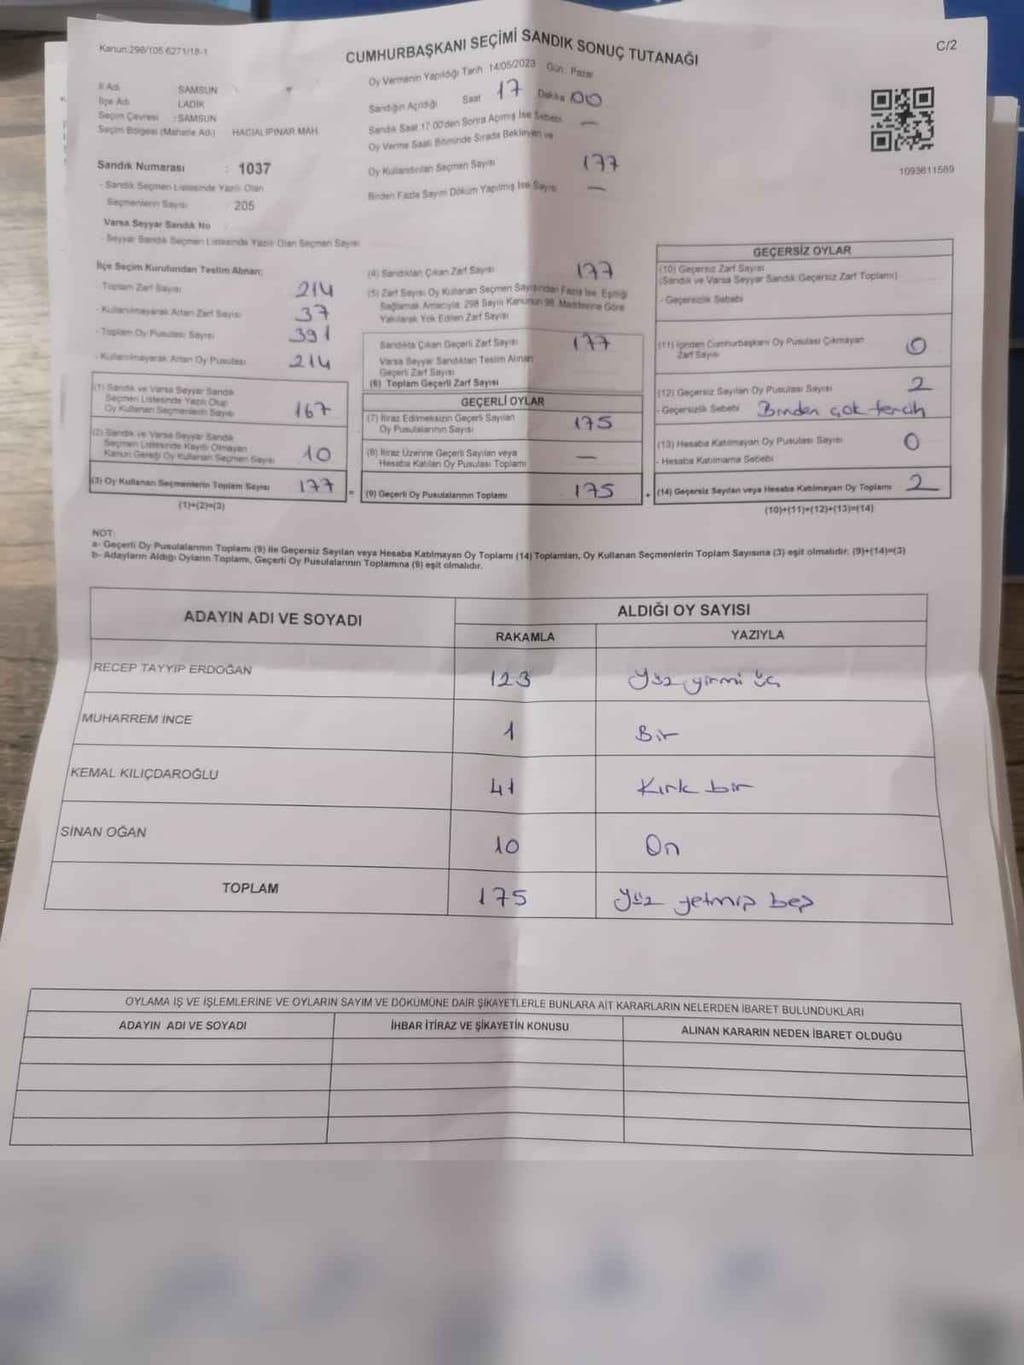 Kanun:298/105 6271/18-1
CUMHURBAŞKANI SEÇİMİ SANDIK SONUÇ TUTANAĞI
C/2
İl Adı SAMSUN
İlçe Adı LADİK
Seçim Çevresi : SAMSUN
Seçim Bölgesi (Mahalle Adı) HACIALIPINAR MAH.
Sandık Numarası : 1037
- Sandık Seçmen Listesinde Yazılı Olan
Seçmenlerin Sayısı 205
Varsa Seyyar Sandık No
- Seyyar Sandık Seçmen Listesinde Yazılı Olan Seçmen Sayısı
Oy Vermenin Yapıldığı Tarih 14/05/2023 Gün: Pazar
Sandığın Açıldığı Saat 17 Dakika 00
Sandık Saat 17:00'den Sonra Açılmış İse Sebebi —
Oy Verme Saati Bitiminde Sırada Bekleyen ve
Oy Kullandırılan Seçmen Sayısı 177
Birden Fazla Sayım Döküm Yapılmış İse Sayısı —
1093611589
İlçe Seçim Kurulundan Teslim Alınan;
Toplam Zarf Sayısı 214
- Kullanılmayarak Artan Zarf Sayısı 37
- Toplam Oy Pusulası Sayısı 391
- Kullanılmayarak Artan Oy Pusulası 214
(1) Sandık ve Varsa Seyyar Sandık
Seçmen Listesinde Yazılı Olup
Oy Kullanan Seçmenlerin Sayısı 167
(2) Sandık ve Varsa Seyyar Sandık
Seçmen Listesinde Kayıtlı Olmayan
Kanun Gereği Oy Kullanan Seçmen Sayısı 10
(3) Oy Kullanan Seçmenlerin Toplam Sayısı 177
(1)+(2)=(3)
(4) Sandıktan Çıkan Zarf Sayısı 177
(5) Zarf Sayısı Oy Kullanan Seçmen Sayısından Fazla İse, Eşitliği
Sağlamak Amacıyla 298 Sayılı Kanunun 98. Maddesine Göre
Yakılarak Yok Edilen Zarf Sayısı
Sandıkta Çıkan Geçerli Zarf Sayısı 177
Varsa Seyyar Sandıktan Teslim Alınan
Geçerli Zarf Sayısı
(6) Toplam Geçerli Zarf Sayısı
GEÇERLİ OYLAR
(7) İtiraz Edilmeksizin Geçerli Sayılan
Oy Pusulalarının Sayısı 175
(8) İtiraz Üzerine Geçerli Sayılan veya
Hesaba Katılan Oy Pusulası Toplamı —
= (9) Geçerli Oy Pusulalarının Toplamı 175 +
GEÇERSİZ OYLAR
(10) Geçersiz Zarf Sayısı
(Sandık ve Varsa Seyyar Sandık Geçersiz Zarf Toplamı)
- Geçersizlik Sebebi
(11) İçinden Cumhurbaşkanı Oy Pusulası Çıkmayan
Zarf Sayısı 0
(12) Geçersiz Sayılan Oy Pusulası Sayısı 2
- Geçersizlik Sebebi Birden çok tercih
(13) Hesaba Katılmayan Oy Pusulası Sayısı 0
- Hesaba Katılmama Sebebi
(14) Geçersiz Sayılan veya Hesaba Katılmayan Oy Toplamı 2
(10)+(11)+(12)+(13)=(14)
NOT:
a- Geçerli Oy Pusulalarının Toplamı (9) ile Geçersiz Sayılan veya Hesaba Katılmayan Oy Toplamı (14) Toplamları, Oy Kullanan Seçmenlerin Toplam Sayısına (3) eşit olmalıdır. (9)+(14)=(3)
b- Adayların Aldığı Oyların Toplamı, Geçerli Oy Pusulalarının Toplamına (9) eşit olmalıdır.
ADAYIN ADI VE SOYADI
ALDIĞI OY SAYISI
RAKAMLA YAZIYLA
RECEP TAYYİP ERDOĞAN 123 Yüz yirmi üç
MUHARREM İNCE 1 Bir
KEMAL KILIÇDAROĞLU 41 Kırk bir
SİNAN OĞAN 10 On
TOPLAM 175 Yüz yetmiş beş
OYLAMA İŞ VE İŞLEMLERİNE VE OYLARIN SAYIM VE DÖKÜMÜNE DAİR ŞİKAYETLERLE BUNLARA AİT KARARLARIN NELERDEN İBARET BULUNDUKLARI
ADAYIN ADI VE SOYADI İHBAR İTİRAZ VE ŞİKAYETİN KONUSU ALINAN KARARIN NEDEN İBARET OLDUĞU